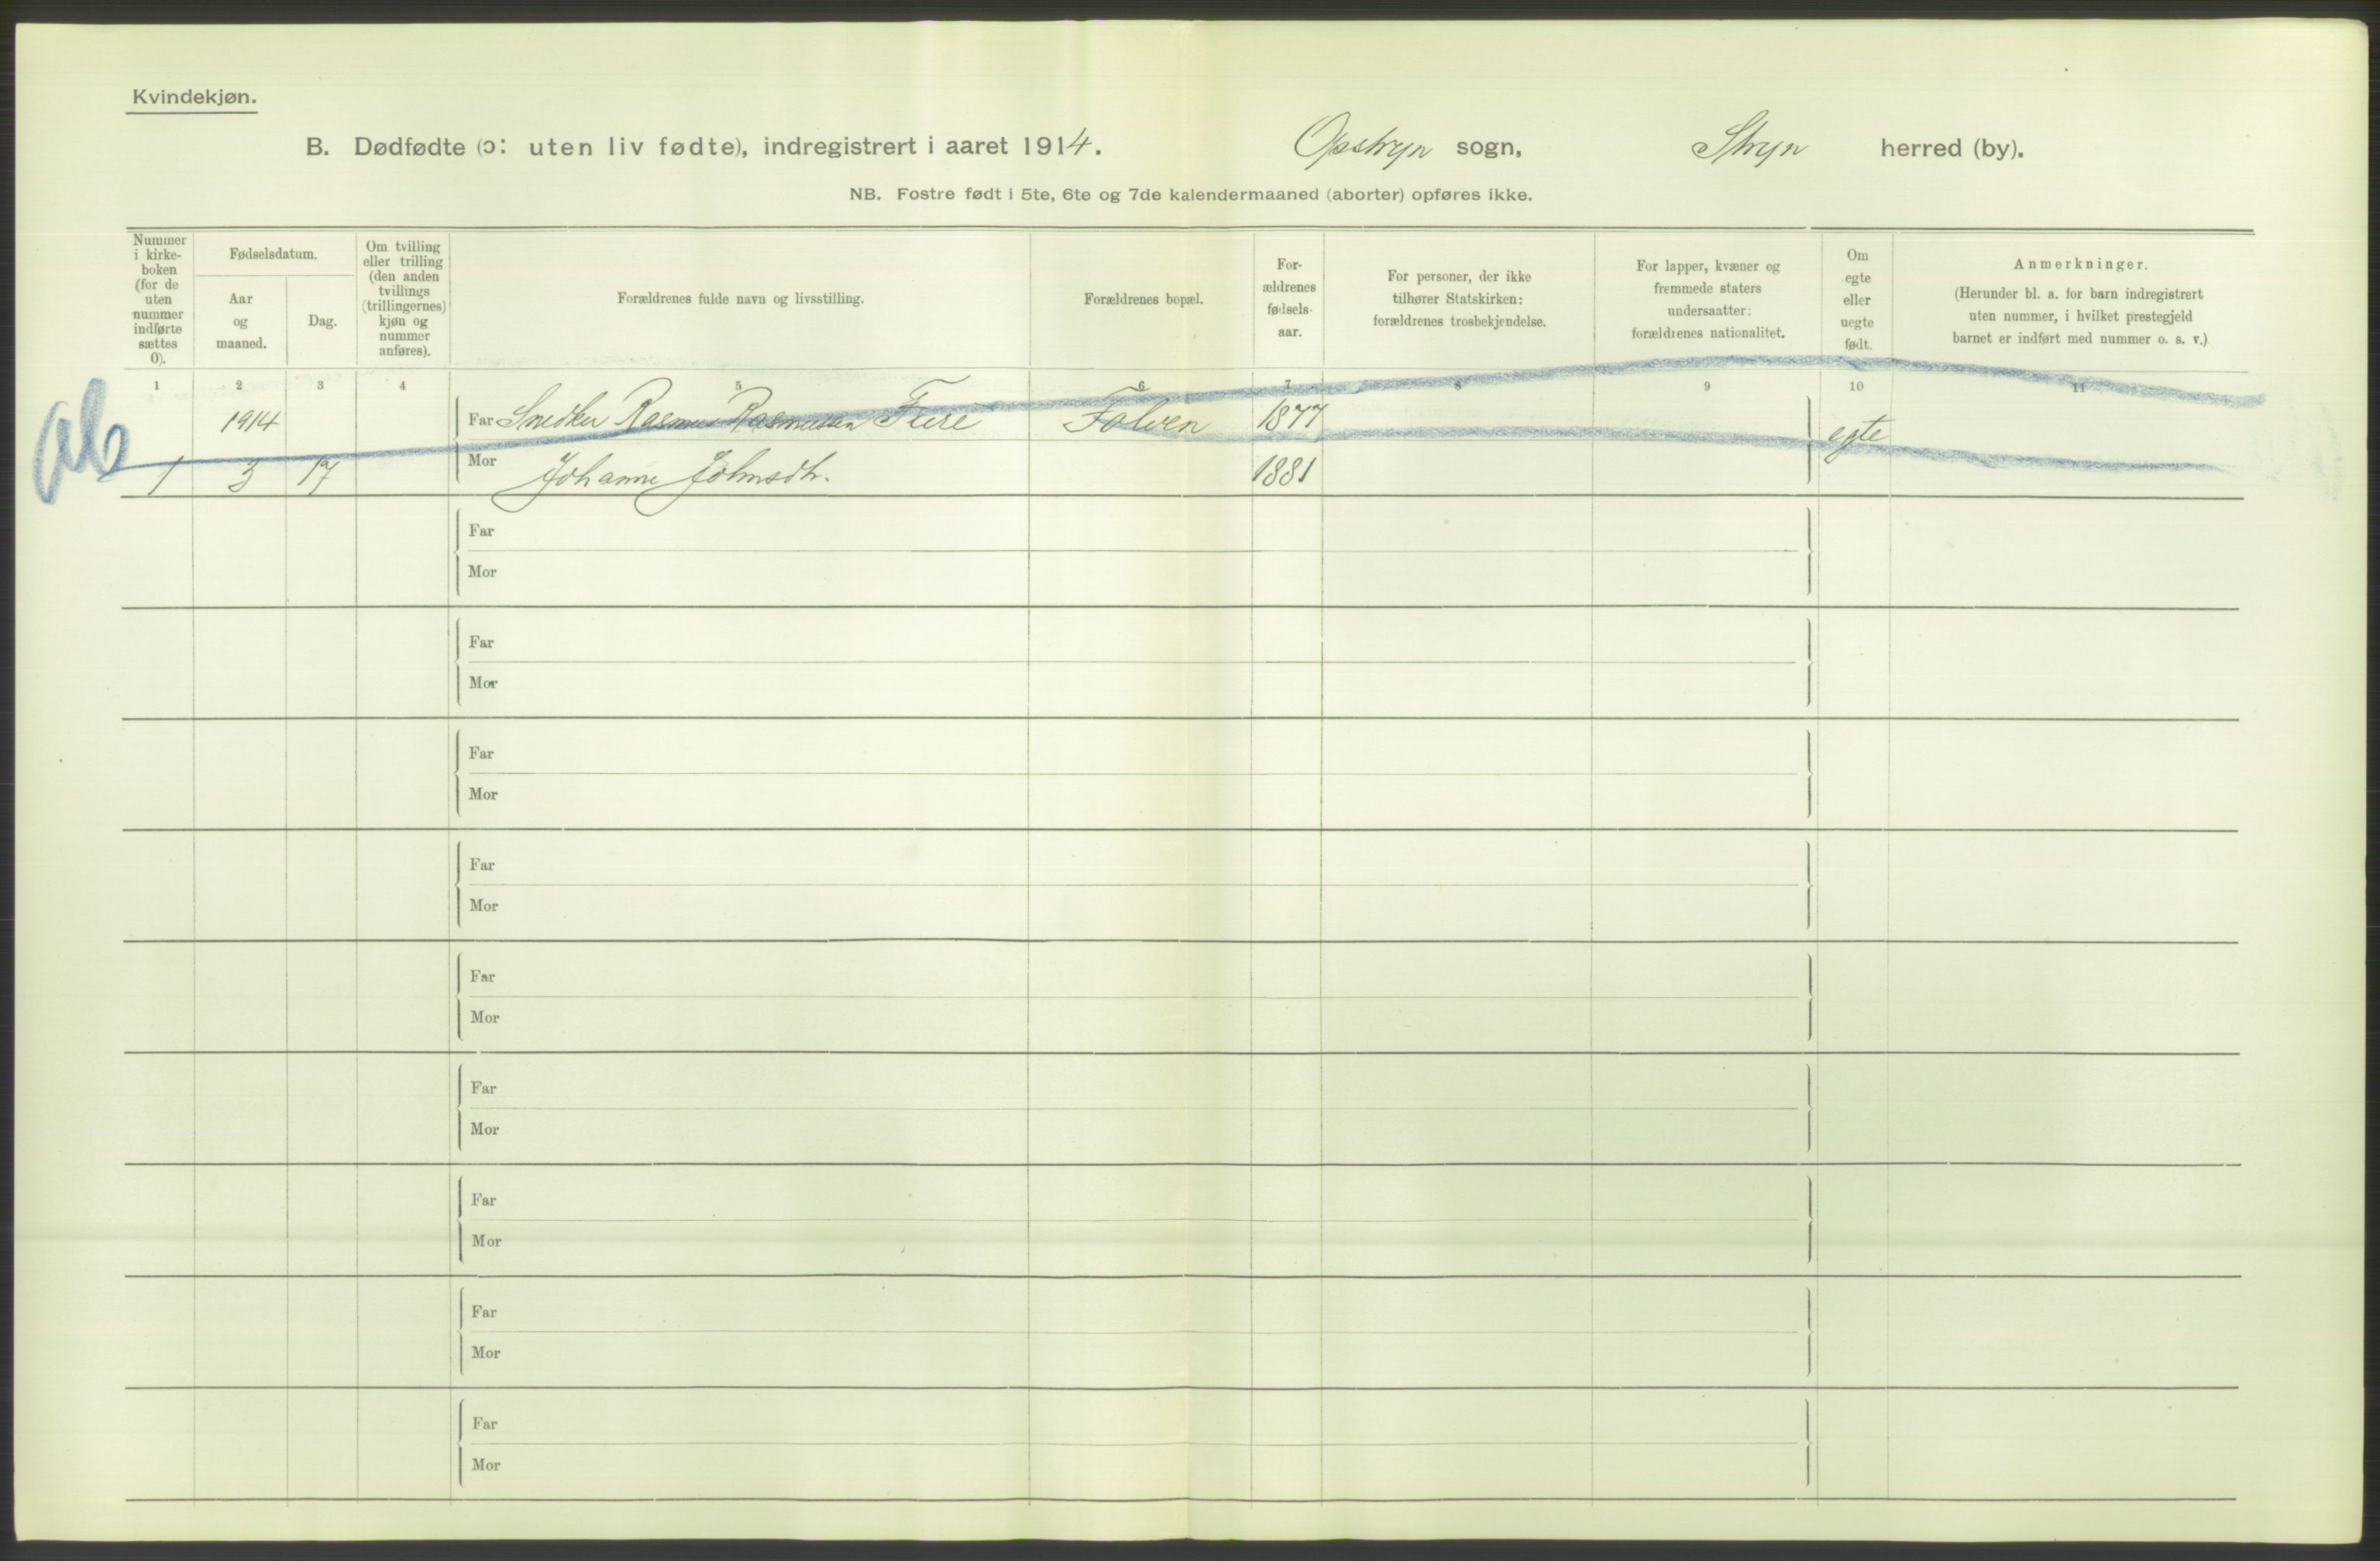 Kvindekjøn.
B. Dødfødte (ɔ: uten liv fødte), indregistrert i aaret 1914. Opstryn sogn, Stryn herred (by).
NB. Fostre født i 5te, 6te og 7de kalendermaaned (aborter) opføres ikke.
Nummer
i kirke-
boken
(for de
uten
nummer
indførte
sættes
0).
Fødselsdatum.
Aar
og
maaned.
Dag.
Om tvilling
eller trilling
(den anden
tvillings
(trillingernes)
kjøn og
nummer
anføres).
Forældrenes fulde navn og livsstilling.
Forældrenes bopæl.
For-
ældrenes
fødsels-
aar.
For personer, der ikke
tilhører Statskirken:
forældrenes trosbekjendelse.
For lapper, kvæner og
fremmede staters
undersaatter:
forældrenes nationalitet.
Om
egte
eller
uegte
født.
Anmerkninger.
(Herunder bl. a. for barn indregistrert
uten nummer, i hvilket prestegjeld
barnet er indført med nummer o. s. v.)
1 2 3 4 5 6 7 8 9 10 11
1914 Far Snedker Rasmus Rasmussen Folven 1877 egte
1 3 17 Mor Johanne Johnsdtr. 1881
Far
Mor
Far
Mor
Far
Mor
Far
Mor
Far
Mor
Far
Mor
Far
Mor
Far
Mor
Far
Mor